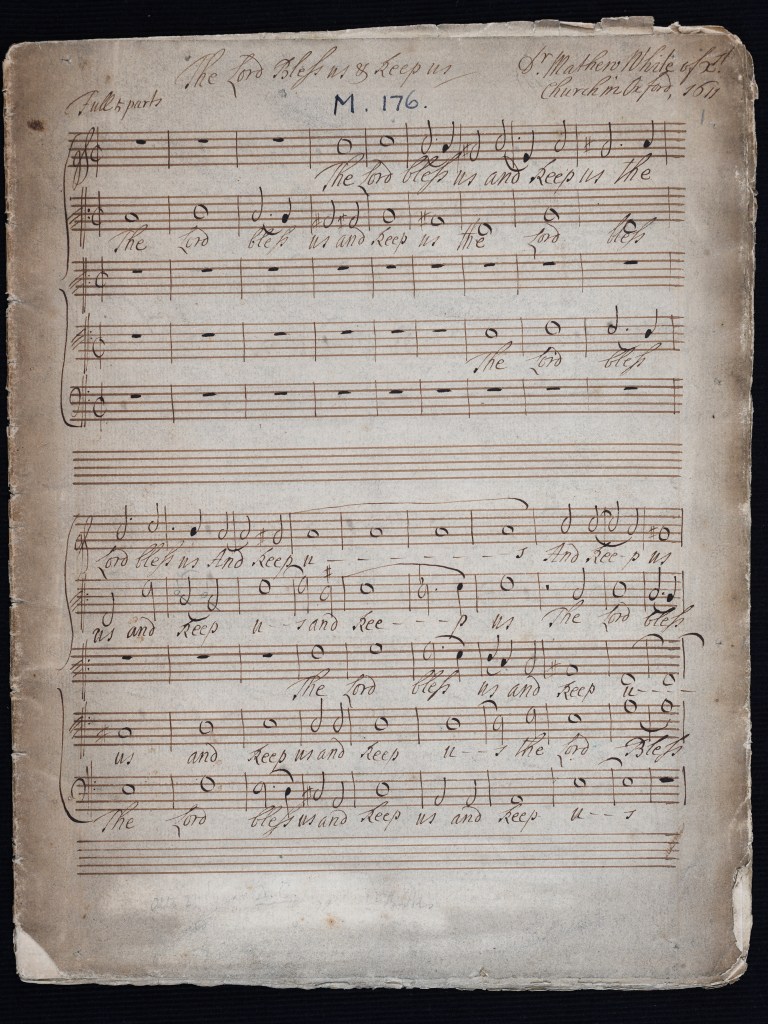 The Lord Bless us & keep us
Dr. Mathew White of Xt.
Church in Oxford, 1611
Full 5 parts
M. 176.
1
The Lord bless us and keep us the
The Lord bless us and keep us the Lord bless
The Lord bless
Lord bless us And keep u - - - - - - - - s And kee - p us
us and keep u - - s and kee - - - - p us The Lord bless
The Lord bless us and keep u - - - -
us and keep us and keep u - - s the Lord Bless
The Lord bless us and keep us and keep u - - s